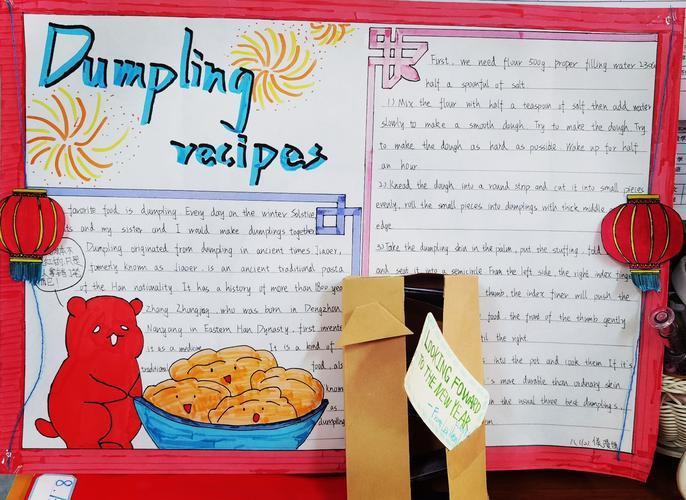 Dumpling
recipes
favorite food is dumpling. Every day on the winter Solstice
and my sister and I would make dumplings together
Dumpling, originated from dumpling in ancient times Jiaoer,
formerly known as Jiaoer, is an ancient traditional pasta
of the Han nationality. It has a history of more than 1800 year
Zhang Zhongjing, who was born in Dengzhou,
Nanyang in Eastern Han Dynasty, first invente
it as a medicine. It is a kind of
traditional food, als
known
as
dumpling
First, we need flour 500g, proper filling water
half a spoonful of salt
1) Mix the flour with half a teaspoon of salt then add water
slowly to make a smooth dough. Try to make the dough. Try
to make the dough as hard as possible. Wake up for half
an hour
2) Knead the dough into a round strip and cut it into small pieces
evenly, roll the small pieces into dumplings with thick middle
edge
3) Take the dumpling skin in the palm, put the stuffing, fold
and seat it into a semicircle from the left side, the right index finge
thumb, the index finer will push the
food, the front of the thumb gently
until the right
into the pot and cook them. If it's
is more durable than ordinary skin.
in the usual three best dumplings,
LOOKING FOWARD
TO THE NEW YEAR